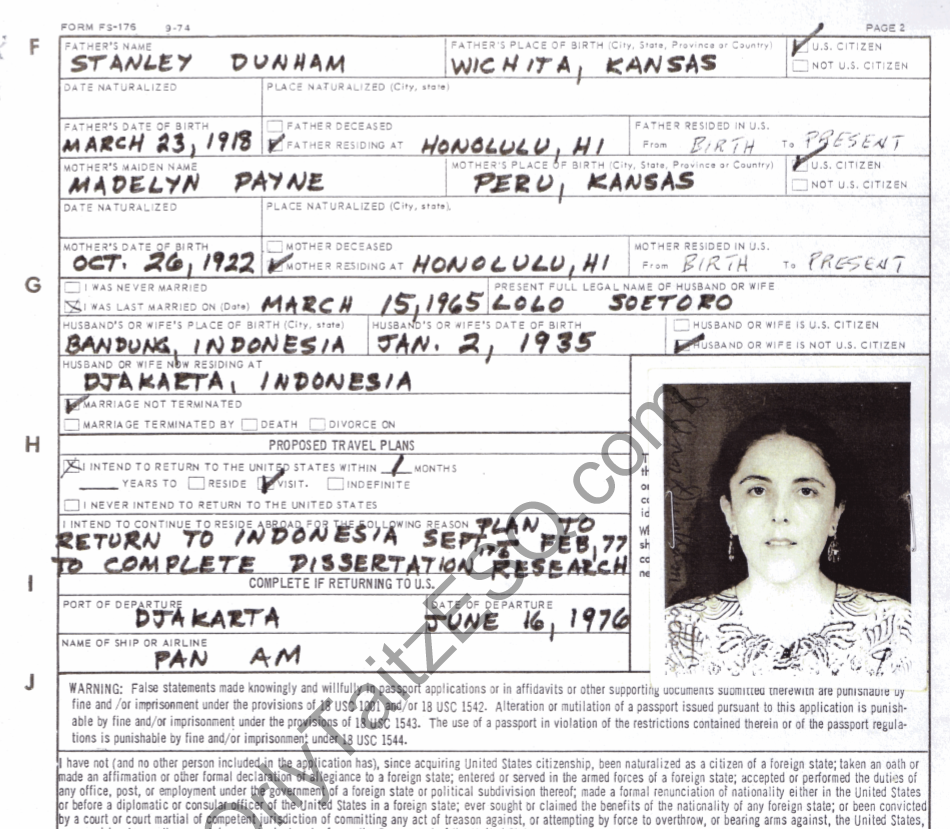 FORM FS-176 9-74 PAGE 2
F
FATHER'S NAME FATHER'S PLACE OF BIRTH (City, State, Province or Country) U.S. CITIZEN
STANLEY DUNHAM WICHITA, KANSAS NOT U.S. CITIZEN
DATE NATURALIZED PLACE NATURALIZED (City, state)
FATHER'S DATE OF BIRTH FATHER DECEASED FATHER RESIDED IN U.S.
MARCH 23, 1918 FATHER RESIDING AT HONOLULU, HI From BIRTH To PRESENT
MOTHER'S MAIDEN NAME MOTHER'S PLACE OF BIRTH (City, State, Province or Country) U.S. CITIZEN
MADELYN PAYNE PERU, KANSAS NOT U.S. CITIZEN
DATE NATURALIZED PLACE NATURALIZED (City, state)
MOTHER'S DATE OF BIRTH MOTHER DECEASED MOTHER RESIDED IN U.S.
OCT. 26, 1922 MOTHER RESIDING AT HONOLULU, HI From BIRTH To PRESENT
G
I WAS NEVER MARRIED PRESENT FULL LEGAL NAME OF HUSBAND OR WIFE
I WAS LAST MARRIED ON (Date) MARCH 15, 1965 LOLO SOETORO
HUSBAND'S OR WIFE'S PLACE OF BIRTH (City, state) HUSBAND'S OR WIFE'S DATE OF BIRTH HUSBAND OR WIFE IS U.S. CITIZEN
BANDUNG, INDONESIA JAN. 2, 1935 HUSBAND OR WIFE IS NOT U.S. CITIZEN
HUSBAND OR WIFE NOW RESIDING AT
DJAKARTA, INDONESIA
MARRIAGE NOT TERMINATED
MARRIAGE TERMINATED BY DEATH DIVORCE ON
H
PROPOSED TRAVEL PLANS
I INTEND TO RETURN TO THE UNITED STATES WITHIN 1 MONTHS
YEARS TO RESIDE VISIT. INDEFINITE
I NEVER INTEND TO RETURN TO THE UNITED STATES
I INTEND TO CONTINUE TO RESIDE ABROAD FOR THE FOLLOWING REASON PLAN TO
RETURN TO INDONESIA SEPT, '76 FEB, 77
TO COMPLETE DISSERTATION RESEARCH
I
COMPLETE IF RETURNING TO U.S.
PORT OF DEPARTURE DATE OF DEPARTURE
DJAKARTA JUNE 16, 1976
NAME OF SHIP OR AIRLINE
PAN AM
J
WARNING: False statements made knowingly and willfully in passport applications or in affidavits or other supporting documents submitted therewith are punishable by
fine and /or imprisonment under the provisions of 18 USC 1001 and/or 18 USC 1542. Alteration or mutilation of a passport issued pursuant to this application is punish-
able by fine and/or imprisonment under the provisions of 18 USC 1543. The use of a passport in violation of the restrictions contained therein or of the passport regula-
tions is punishable by fine and/or imprisonment under 18 USC 1544.
I have not (and no other person included in the application has), since acquiring United States citizenship, been naturalized as a citizen of a foreign state; taken an oath or
made an affirmation or other formal declaration of allegiance to a foreign state; entered or served in the armed forces of a foreign state; accepted or performed the duties of
any office, post, or employment under the government of a foreign state or political subdivision thereof; made a formal renunciation of nationality either in the United States
or before a diplomatic or consular officer of the United States in a foreign state; ever sought or claimed the benefits of the nationality of any foreign state; or been convicted
by a court or court martial of competent jurisdiction of committing any act of treason against, or attempting by force to overthrow, or bearing arms against, the United States,
OrlyTaitzESQ.com